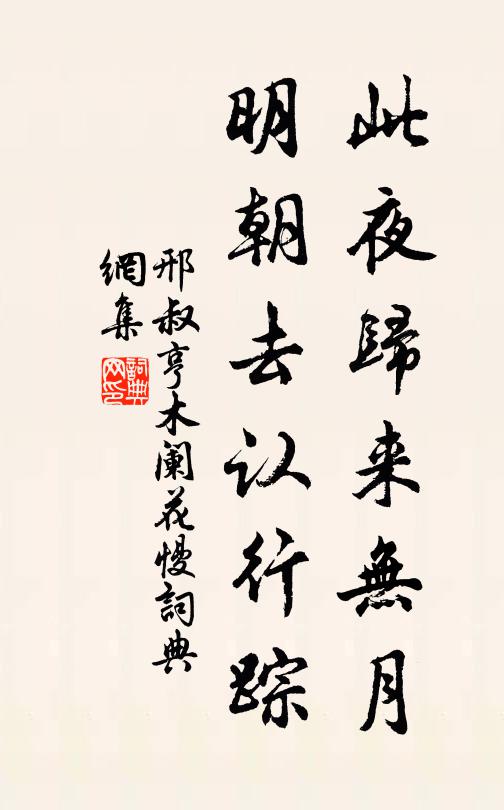 此夜歸来無月
明朝去认行踪
邢叔亨木阑花慢詞典
網集
詞典
网印